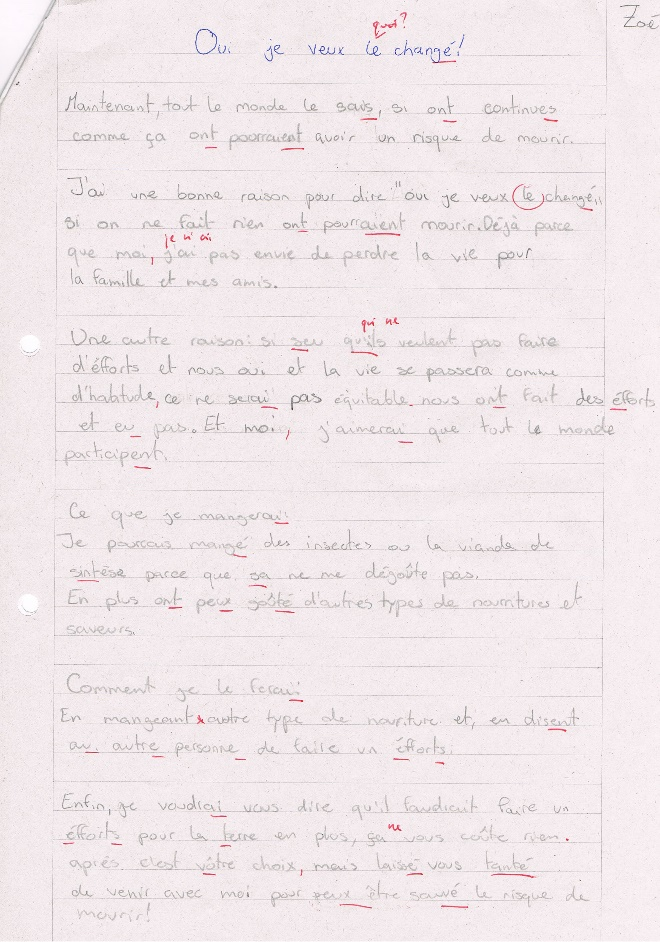 Zoé
quoi?
Oui je veux le changé!
Maintenant, tout le monde le sais, si ont continues
comme ça ont pourraient avoir un risque de mourir.
J'ai une bonne raison pour dire "oui je veux le changé"
si on ne fait rien ont pourraient mourir. Déjà parce
je n'ai
que moi, j'ai pas envie de perdre la vie pour
la famille et mes amis.
qui ne
Une autre raison: si seu qu'ils veulent pas faire
d'éfforts et nous oui et la vie se passera comme
d'habitude, ce ne serai pas équitable. nous ont fait des éfforts
et eu pas. Et moi, j'aimerai que tout le monde
participent.
Ce que je mangerai:
Je pourrais mangé des insectes ou la viande de
sintèse parce que sa ne me dégoûte pas.
En plus ont peux goûté d'autres types de nourritures et
saveurs.
Comment je le ferai:
En mangeant autre type de nouriture et, en disent
au autre personne de faire un éfforts.
Enfin, je voudrai vous dire qu'il faudrait faire un
ne
éfforts pour la terre en plus, ça vous coûte rien.
après c'est vôtre choix, mais laissé vous tanté
de venir avec moi pour peux être sauvé le risque de
mourir!